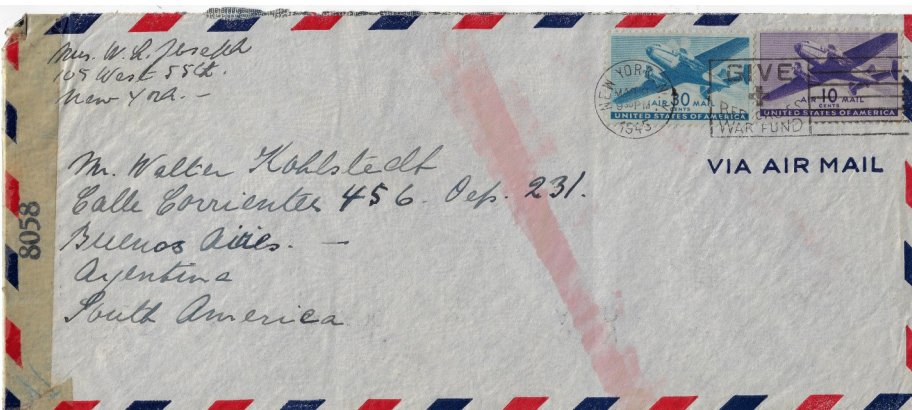 Mrs. W. L. Joseph
105 West 55th.
New York. -
NEW YORK, N.Y.
1943
GIVE
RED CROSS
WAR FUND
AIR 30 MAIL
CENTS
UNITED STATES OF AMERICA
AIR 10 MAIL
CENTS
UNITED STATES OF AMERICA
VIA AIR MAIL
Mr. Walter Kohlstedt
Calle Corrientes 456. Dep. 231.
Buenos Aires. -
Argentina
South America
8058